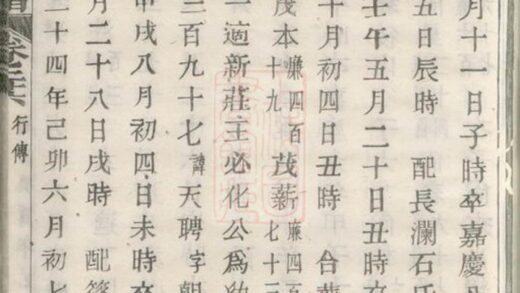 月十一日子時卒嘉慶
五日辰時 配長瀾石氏
壬午五月二十日丑時卒
十月初四日丑時 合葬
茂本廉四百十九 茂薪廉四百七十三
一適新莊主必化公爲幼
三百九十七 諱天聘字朝
甲戌八月初四日未時卒
月二十八日戌時 配
二十四年己卯六月初七
行傳